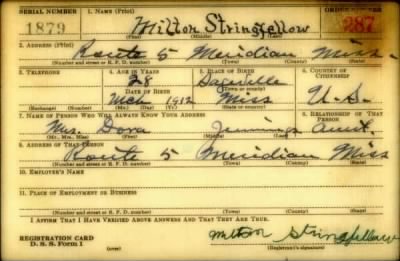 SERIAL NUMBER 1. NAME (Print) ORDER NUMBER
1879 Milton Stringfellow 287
(First) (Middle) (Last)
2. ADDRESS (Print)
Route 5 Meridian Miss.
(Number and street or R. F. D. number) (Town) (County) (State)
3. TELEPHONE 4. AGE IN YEARS 5. PLACE OF BIRTH 6. COUNTRY OF CITIZENSHIP
28
DATE OF BIRTH (Town or county)
1912 Miss U.S.
(Exchange) (Number) (Mo.) (Day) (Yr.) (State or country)
7. NAME OF PERSON WHO WILL ALWAYS KNOW YOUR ADDRESS 8. RELATIONSHIP OF THAT PERSON
Mrs. Dora Jennings Aunt.
(Mr., Mrs., Miss) (First) (Middle) (Last)
9. ADDRESS OF THAT PERSON
Route 5 Meridian Miss
(Number and street or R. F. D. number) (Town) (County) (State)
10. EMPLOYER'S NAME
11. PLACE OF EMPLOYMENT OR BUSINESS
(Number and street or R. F. D. number) (Town) (County) (State)
I AFFIRM THAT I HAVE VERIFIED ABOVE ANSWERS AND THAT THEY ARE TRUE.
REGISTRATION CARD
D. S. S. Form 1 (over) Milton Stringfellow
(Registrant's signature)